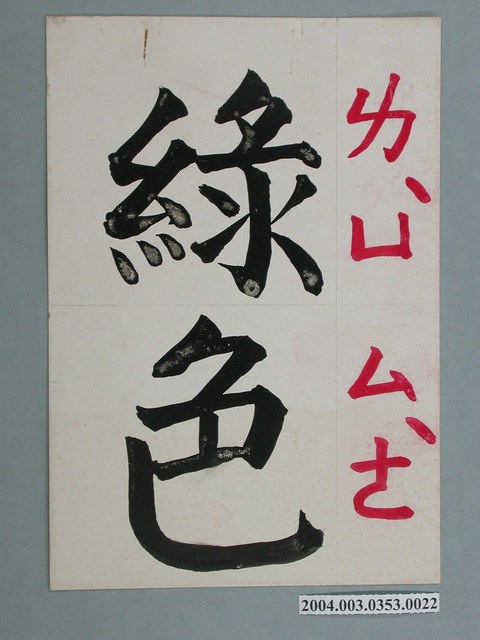 綠色
ㄌㄩˋ ㄙㄜˋ
2004.003.0353.0022